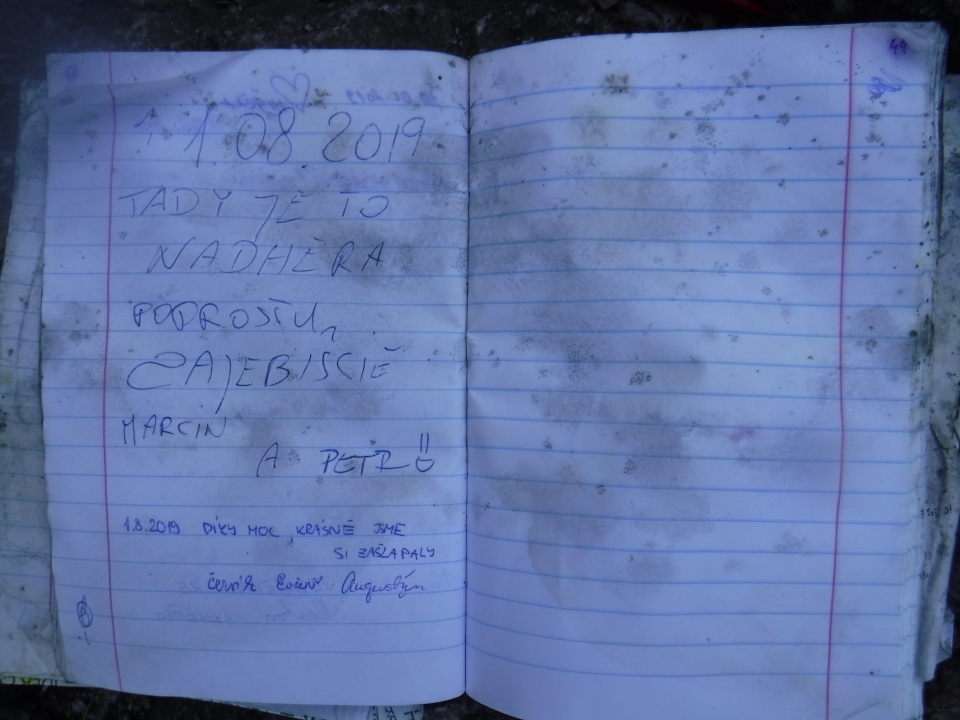 1 08 2019
TADY JE TO
NADHERA
POPROSTU,
ZAJEBISCIE
MARCIN
A PETR
1.8.2019 DÍKY MOC, KRÁSNĚ JSME
SI ZAŠLAPALY
Augustýn
49